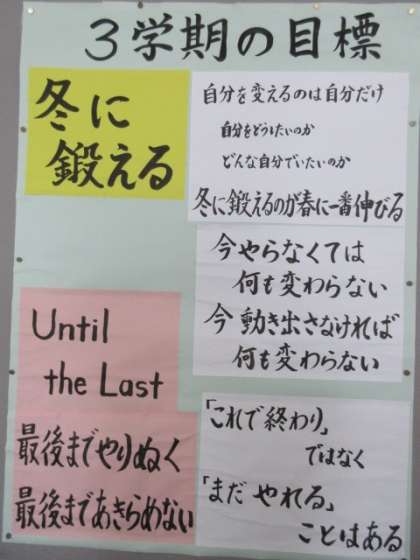 3学期の目標
冬に
鍛える
自分を変えるのは自分だけ
自分をどうしたいのか
どんな自分でいたいのか
冬に鍛えるのが春に一番伸びる
今やらなくては
何も変わらない
今動き出さなければ
何も変わらない
Until
the Last
最後までやりぬく
最後まであきらめない
「これで終わり」
ではなく
「まだやれる」
ことはある